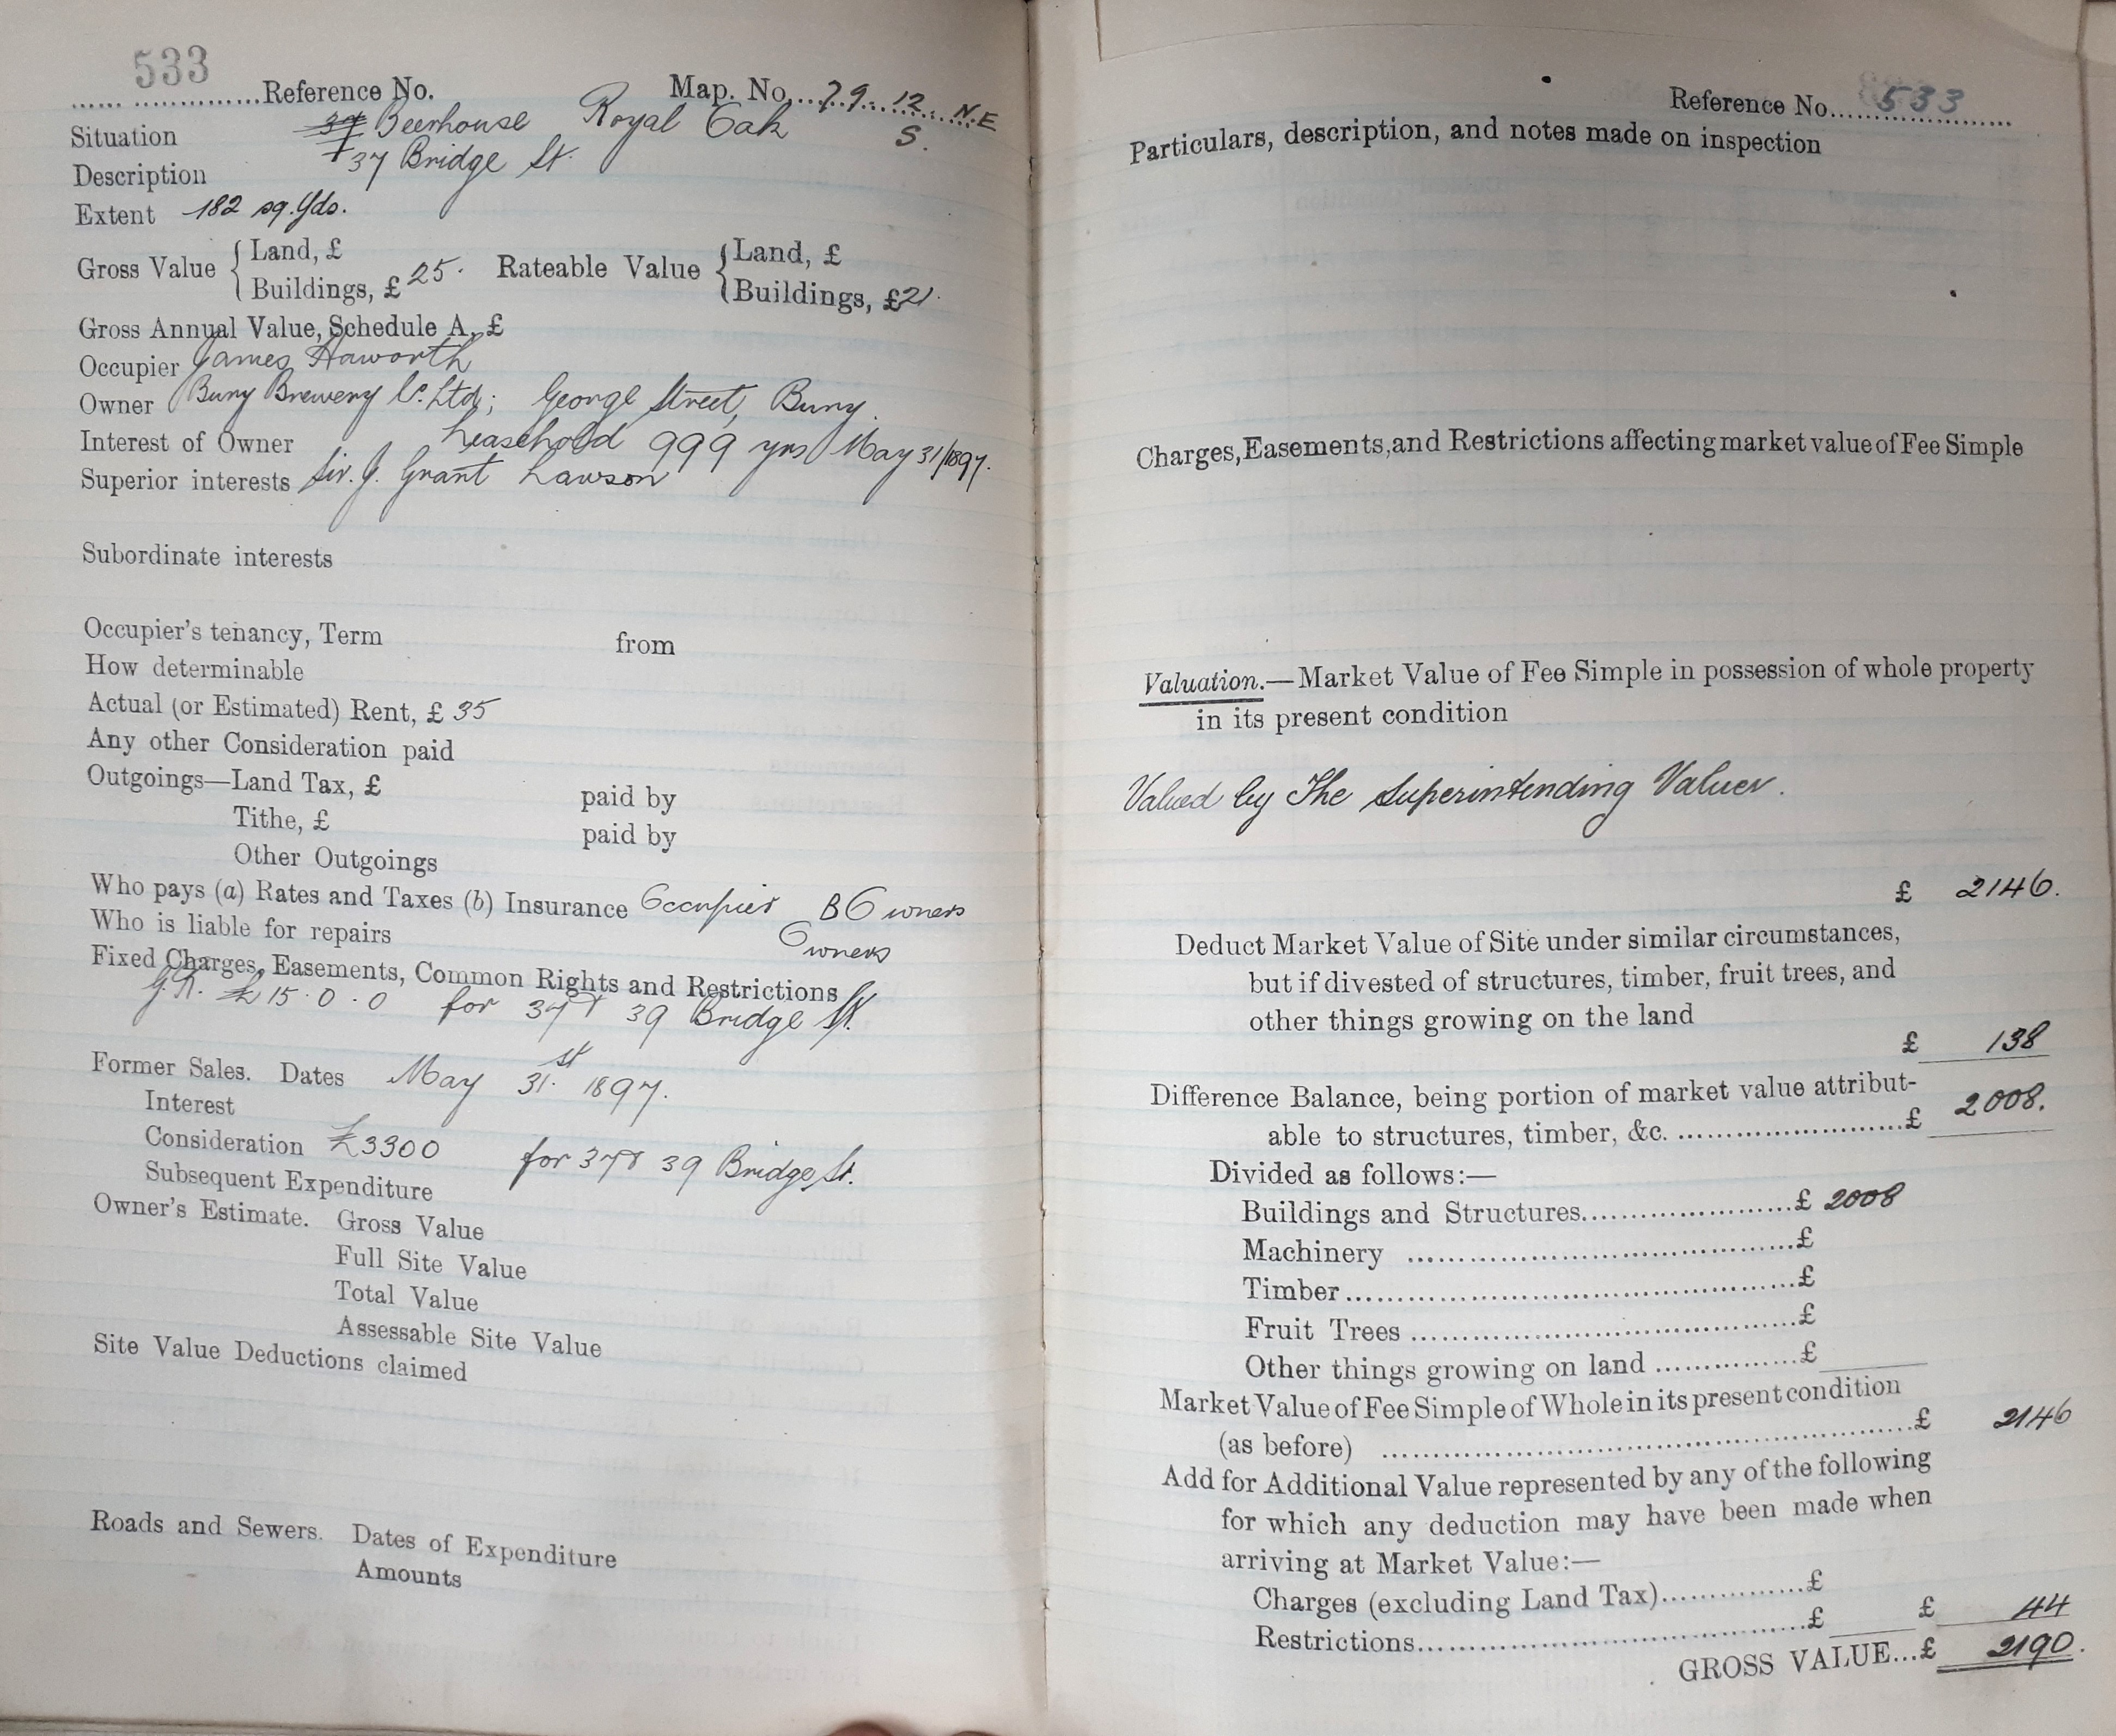 533
Reference No. Map. No. 79. 12. N.E
S.
Situation 37 Beerhouse Royal Oak
Description 37 Bridge St.
Extent 182 sq. Yds.
Gross Value { Land, £ Rateable Value { Land, £
Buildings, £ 25. Buildings, £ 21.
Gross Annual Value, Schedule A, £
Occupier James Haworth
Owner Bury Brewery Co. Ltd; George Street, Bury.
Interest of Owner Leasehold 999 yrs May 31/1897.
Superior interests Sir. J. Grant Lawson
Subordinate interests
Occupier's tenancy, Term from
How determinable
Actual (or Estimated) Rent, £ 35
Any other Consideration paid
Outgoings—Land Tax, £ paid by
Tithe, £ paid by
Other Outgoings
Who pays (a) Rates and Taxes (b) Insurance Occupier B Owners
Who is liable for repairs Owners
Fixed Charges, Easements, Common Rights and Restrictions
G.R. £15.0.0 for 37 & 39 Bridge St.
Former Sales. Dates May 31st 1897.
Interest
Consideration £3300 for 37 & 39 Bridge St.
Subsequent Expenditure
Owner's Estimate. Gross Value
Full Site Value
Total Value
Assessable Site Value
Site Value Deductions claimed
Roads and Sewers. Dates of Expenditure
Amounts
Reference No. 533
Particulars, description, and notes made on inspection
Charges, Easements, and Restrictions affecting market value of Fee Simple
Valuation.—Market Value of Fee Simple in possession of whole property
in its present condition
Valued by The Superintending Valuer.
£ 2146.
Deduct Market Value of Site under similar circumstances,
but if divested of structures, timber, fruit trees, and
other things growing on the land
£ 138
Difference Balance, being portion of market value attribut-
able to structures, timber, &c. ........ £ 2008.
Divided as follows:—
Buildings and Structures........ £ 2008
Machinery ........ £
Timber........ £
Fruit Trees ........ £
Other things growing on land ........ £
Market Value of Fee Simple of Whole in its present condition
(as before) ........ £ 2146
Add for Additional Value represented by any of the following
for which any deduction may have been made when
arriving at Market Value:—
Charges (excluding Land Tax)........ £
Restrictions........ £ £ 44
GROSS VALUE...£ 2190.